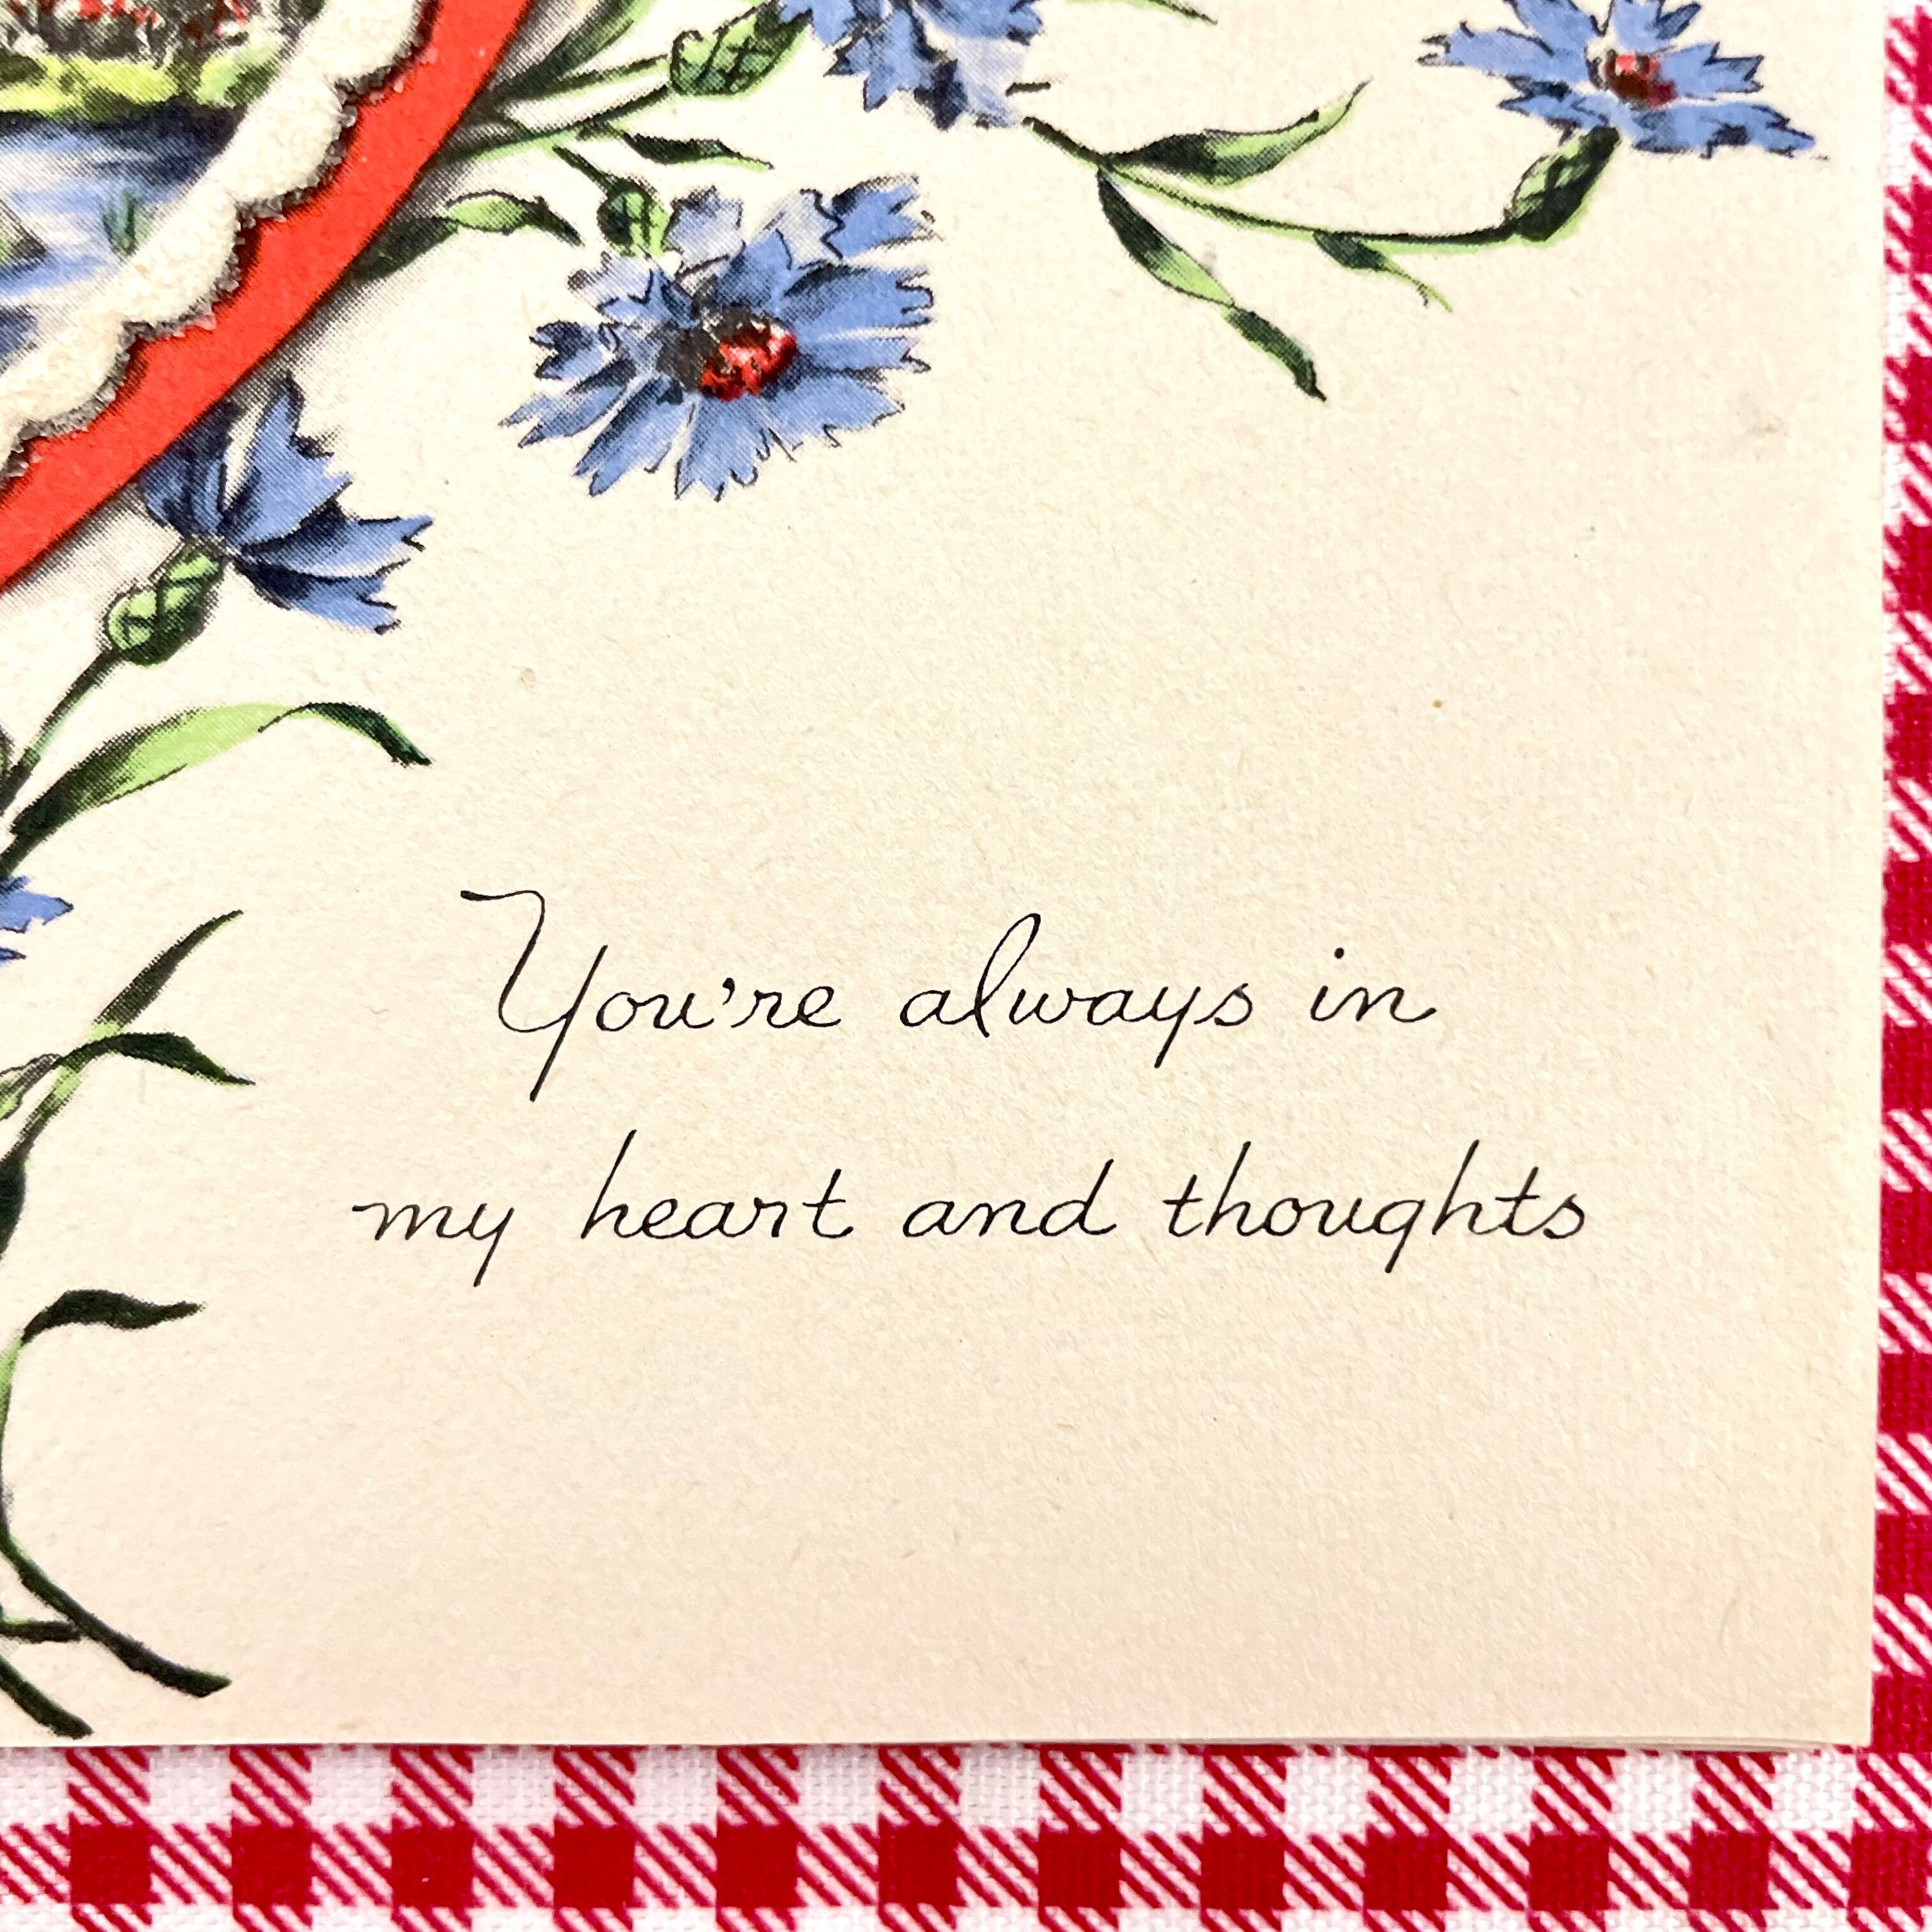 You're always in
my heart and thoughts